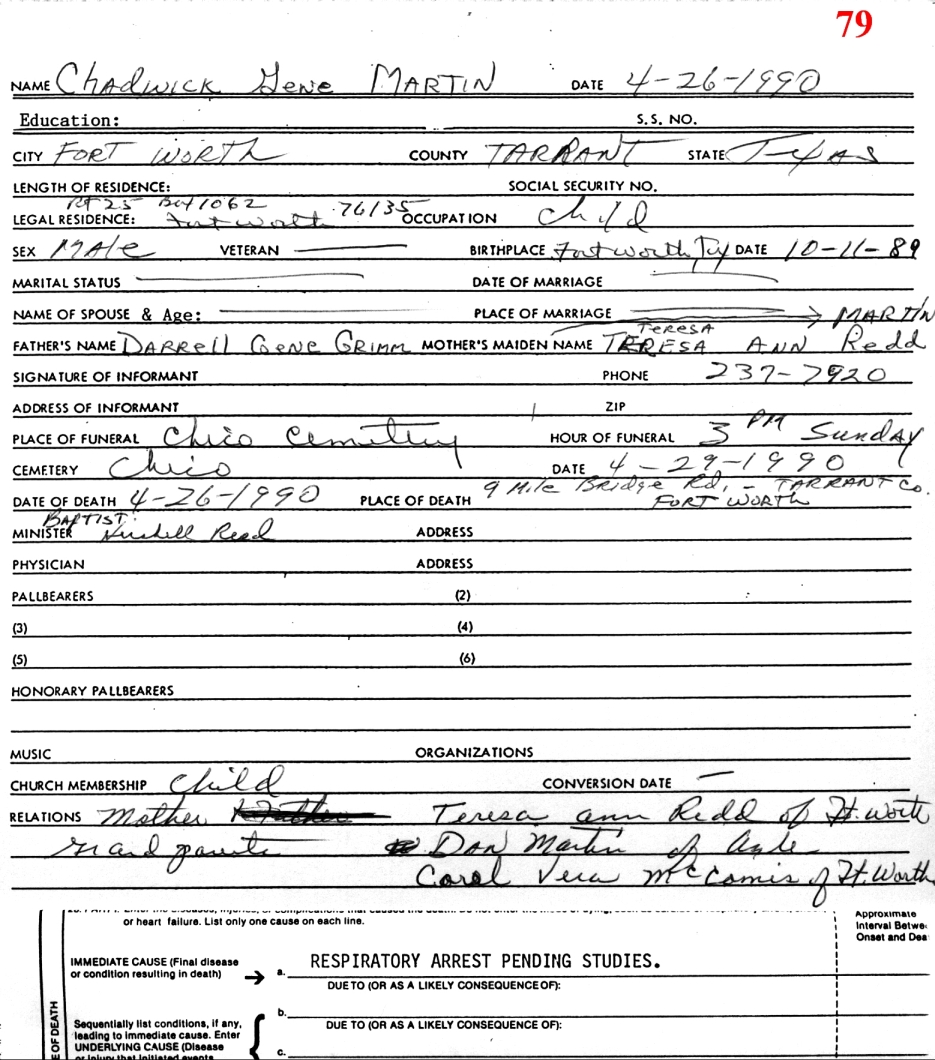 79
NAME Chadwick Gene MARTIN DATE 4-26-1990
Education: S.S. NO.
CITY FORT WORTH COUNTY TARRANT STATE Texas
LENGTH OF RESIDENCE: SOCIAL SECURITY NO.
RT 25 Box 1062
LEGAL RESIDENCE: Fort Worth 76135 OCCUPATION Child
SEX MAle VETERAN BIRTHPLACE Fort Worth, Tx DATE 10-11-89
MARITAL STATUS DATE OF MARRIAGE
NAME OF SPOUSE & Age: PLACE OF MARRIAGE → MARTIN
TERESA
FATHER'S NAME DARRell GENE GRIMM MOTHER'S MAIDEN NAME TERESA ANN Redd
SIGNATURE OF INFORMANT PHONE 237-7920
ADDRESS OF INFORMANT ZIP
PLACE OF FUNERAL Chico Cemetery HOUR OF FUNERAL 3 PM Sunday
CEMETERY Chico DATE 4-29-1990
DATE OF DEATH 4-26-1990 PLACE OF DEATH 9 Mile Bridge Rd, - TARRANT CO.
FORT WORTH
BAPTIST:
MINISTER ADDRESS
PHYSICIAN ADDRESS
PALLBEARERS (2)
(3) (4)
(5) (6)
HONORARY PALLBEARERS
MUSIC ORGANIZATIONS
CHURCH MEMBERSHIP Child CONVERSION DATE —
RELATIONS Mother Teresa ann Redd of Ft. Worth
Grand parents Don Martin of Azle
Carol Vera McCamis of Ft. Worth
or heart failure. List only one cause on each line.
Approximate
Interval Betwe
Onset and Dea
IMMEDIATE CAUSE (Final disease
or condition resulting in death) → a. RESPIRATORY ARREST PENDING STUDIES.
DUE TO (OR AS A LIKELY CONSEQUENCE OF):
b.
Sequentially list conditions, if any,
leading to immediate cause. Enter
UNDERLYING CAUSE (Disease
or injury that initiated events
DUE TO (OR AS A LIKELY CONSEQUENCE OF):
c.
E OF DEATH